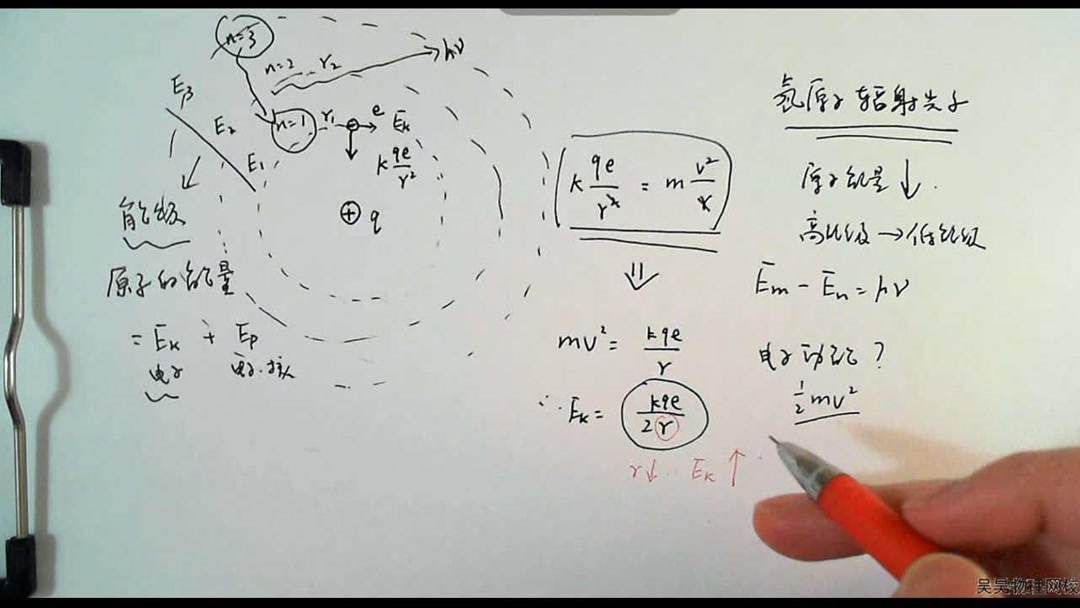 n=3
n=2 r₂ hν
E₃
E₂
E₁
n=1 r₁ e E_K
k qe/r²
⊕ q
能级
原子的能量
= E_K + E_P
电子 电子.核
k qe/r² = m v²/r
⇓
mv² = kqe/r
∴ E_K = kqe/2r
r↓ E_K ↑
氢原子辐射光子
原子能量↓.
高能级→低能级
E_m − E_n = hν
电子动能?
½mv²
吴昊物理网校